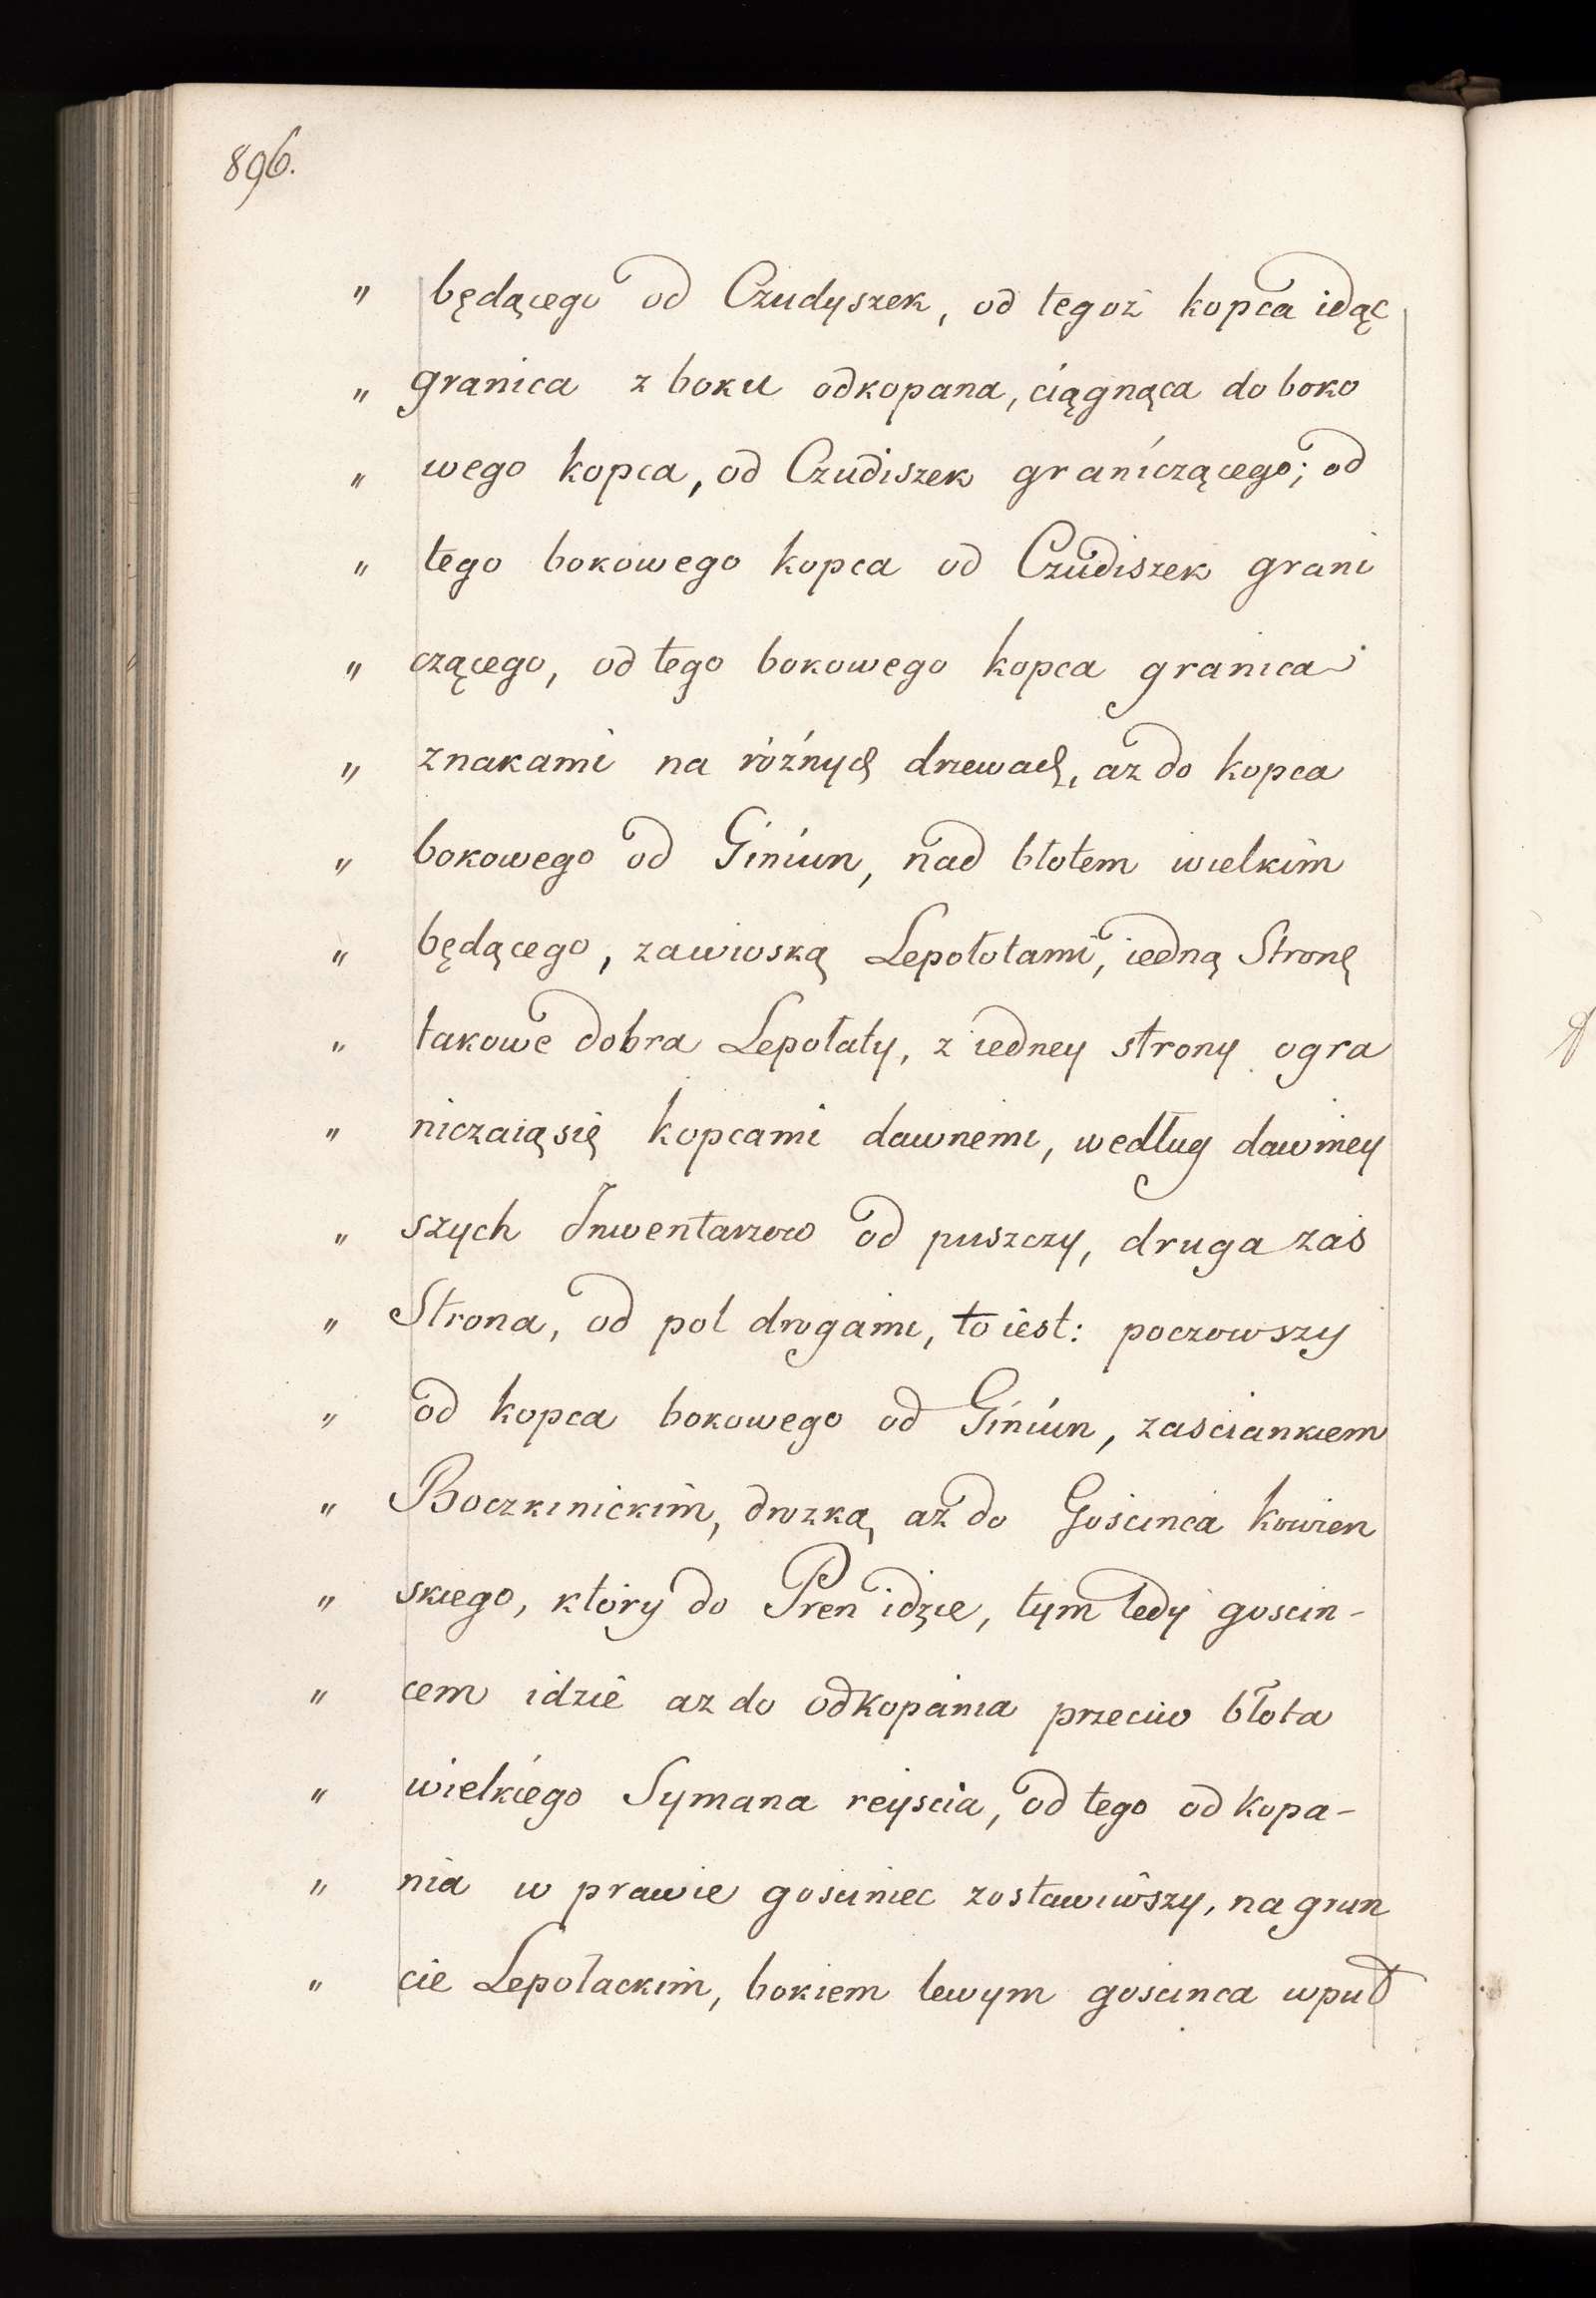 896.
" będącego od Czudyszek, od tegoż kopca idąc
" granica z boku odkopana, ciągnąca do boko
" wego kopca, od Czudiszek graniczącego; od
" tego bokowego kopca od Czudiszek grani
" czącego, od tego bokowego kopca granica
" znakami na różnych drzewach, aż do kopca
" bokowego od Giniun, nad błotem wielkim
" będącego, zawioską Lepołotami, iedną Stronę
" takowe dobra Lepołaty, z iedney strony ogra
" niczaią się kopcami dawnemi, według dawniey
" szych Inwentarzow od puszczy, druga zaś
" Strona, od pol drogami, to iest: poczowszy
" od kopca bokowego od Giniun, zasciankiem
" Boczkinickim, drozką aż do Goscinca kowien
" skiego, który do Pren idzie, tym tedy goscin-
" cem idzie az do odkopania przeciw błota
" wielkiego Symana reyscia, od tego odkopa-
" nia w prawie gosciniec zostawiwszy, na grun
" cie Lepołackim, bokiem lewym goscinca wpud